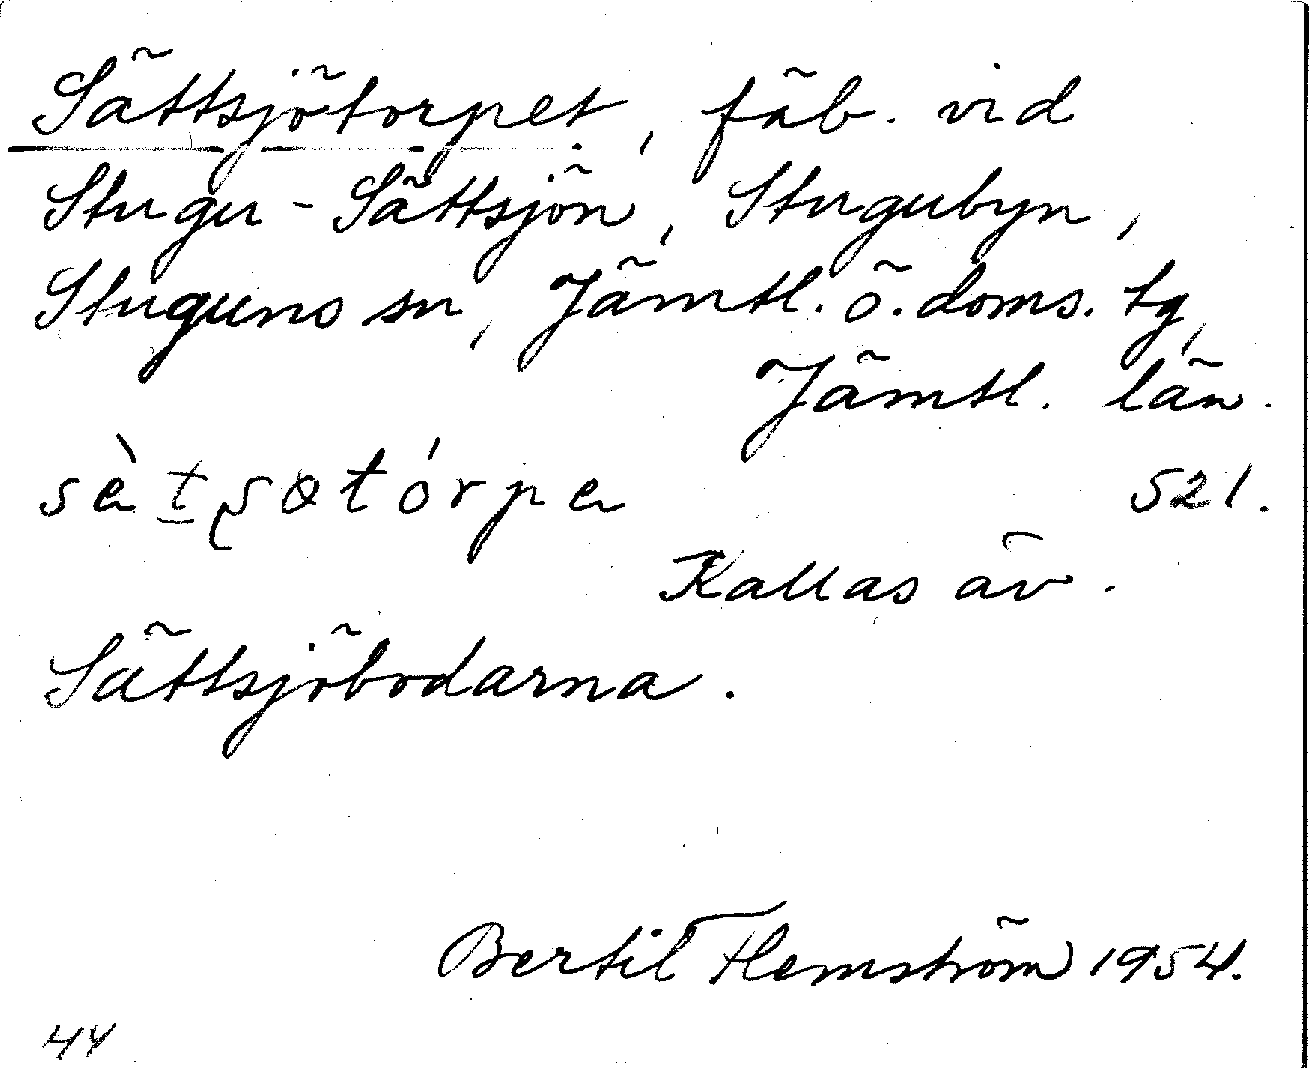 Sättsjötorpet, fäb. vid
Stugu-Sättsjön, Stugubyn,
Stuguns sn, Jämtl. ö. doms. tg,
Jämtl. län.
521.
Kallas äv.
Sättsjöbodarna.
Bertil Flemström 1954.
44